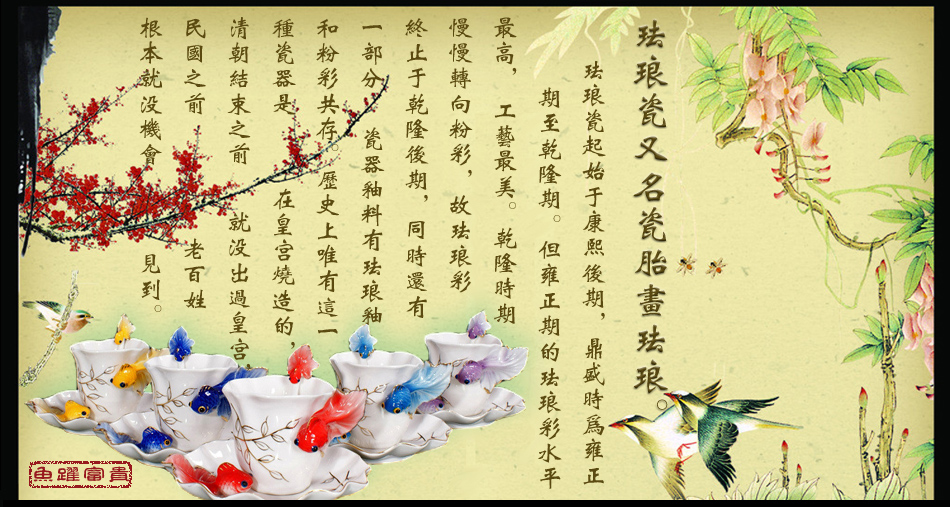 珐琅瓷又名瓷胎畫珐琅。
珐琅瓷起始于康熙後期，鼎盛時爲雍正
期至乾隆期。但雍正期的珐琅彩水平
最高，工藝最美。乾隆時期
慢慢轉向粉彩，故珐琅彩
終止于乾隆後期，同時還有
一部分，瓷器釉料有珐琅釉
和粉彩共存。歷史上唯有這一
種瓷器是，在皇宮燒造的，
清朝結束之前，就没出過皇宮，
民國之前，老百姓
根本就没機會，見到。
魚躍富貴